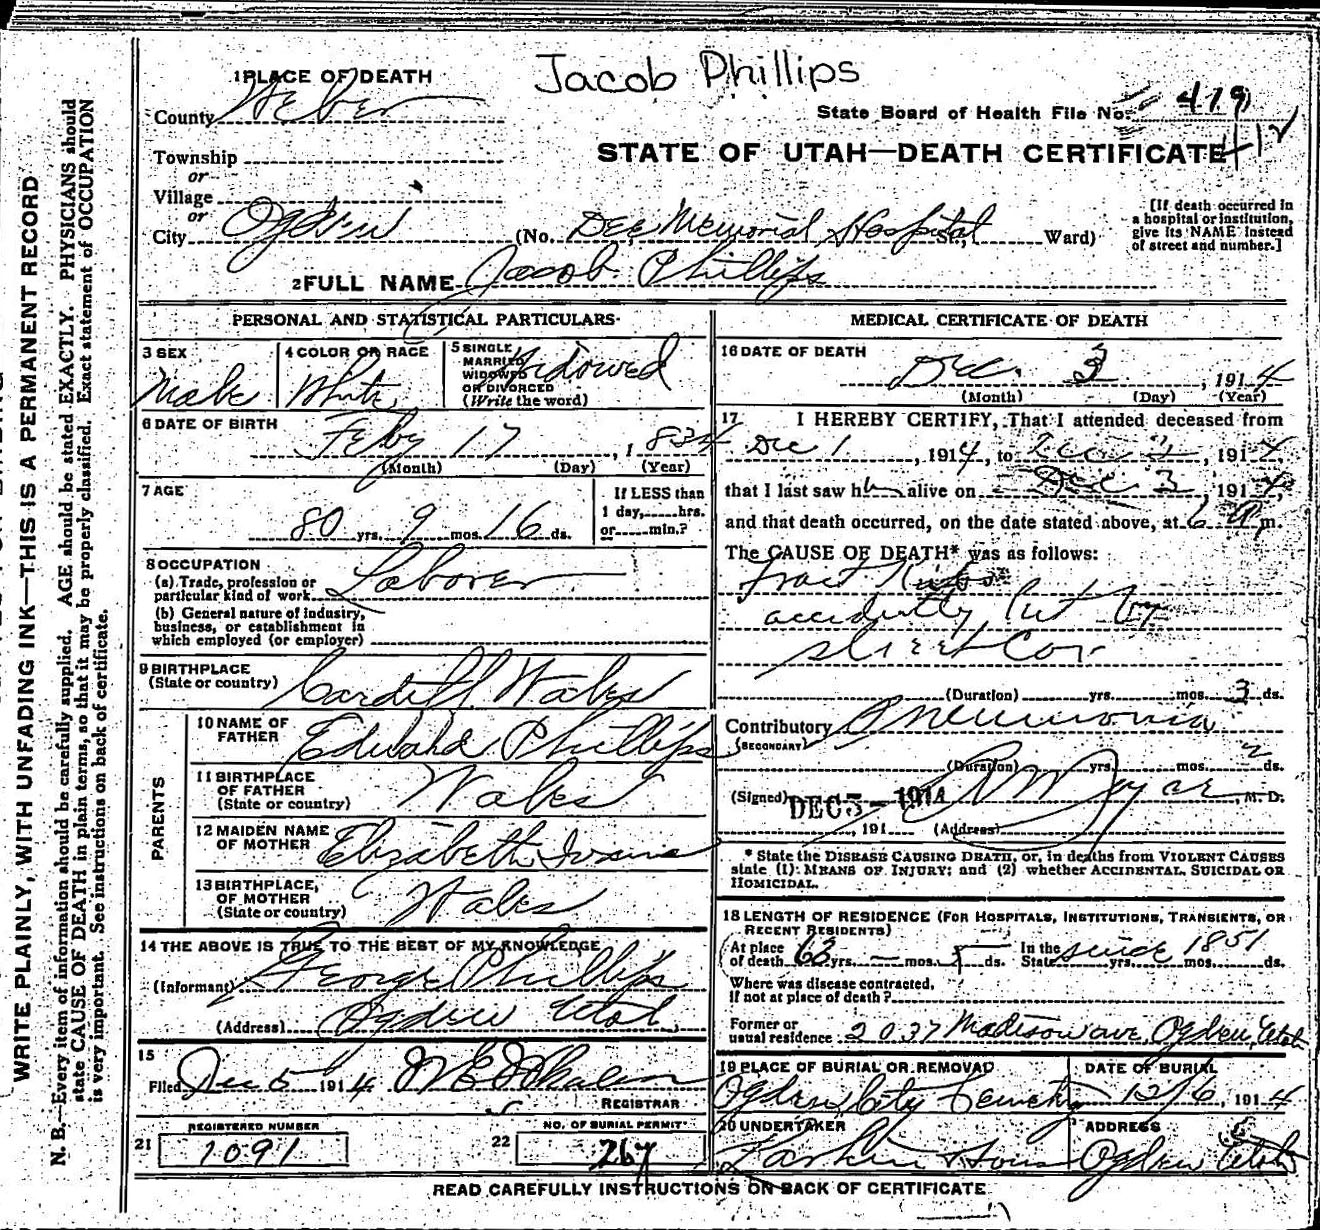 Jacob Phillips
1 PLACE OF DEATH
County Weber
State Board of Health File No. 419
412
Township
or
Village
or
City Ogden
STATE OF UTAH—DEATH CERTIFICATE
(No. Dee Memorial Hospital St., Ward)
[If death occurred in
a hospital or institution,
give its NAME instead
of street and number.]
2 FULL NAME Jacob Phillips
PERSONAL AND STATISTICAL PARTICULARS
3 SEX
Male
4 COLOR OR RACE
White
5 SINGLE,
MARRIED
WIDOWED
OR DIVORCED
(Write the word)
Widowed
6 DATE OF BIRTH
Feby 17, 1834
(Month) (Day) (Year)
7 AGE
80 yrs. 9 mos. 16 ds.
If LESS than
1 day, hrs.
or min.?
8 OCCUPATION
(a) Trade, profession or
particular kind of work Laborer
(b) General nature of industry,
business, or establishment in
which employed (or employer)
9 BIRTHPLACE
(State or country) Cardiff Wales
PARENTS
10 NAME OF
FATHER Edward Phillips
11 BIRTHPLACE
OF FATHER
(State or country) Wales
12 MAIDEN NAME
OF MOTHER Elizabeth
13 BIRTHPLACE,
OF MOTHER
(State or country) Wales
14 THE ABOVE IS TRUE TO THE BEST OF MY KNOWLEDGE
(Informant) George Phillips
(Address) Ogden Utah
15
Filed Dec 5 1914
REGISTRAR
21 REGISTERED NUMBER
1091
22 NO. OF BURIAL PERMIT
267
MEDICAL CERTIFICATE OF DEATH
16 DATE OF DEATH
Dec. 3, 1914
(Month) (Day) (Year)
17 I HEREBY CERTIFY, That I attended deceased from
Dec 1, 1914, to Dec 3, 1914
that I last saw h alive on Dec 3, 1914,
and that death occurred, on the date stated above, at 6 a m.
The CAUSE OF DEATH* was as follows:
Fract Ribs
accidently hit by
street Car
(Duration) yrs. mos. 3 ds.
Contributory Pneumonia
(SECONDARY)
(Duration) yrs. mos. 2 ds.
(Signed) M. D.
DEC 5 - 1914
, 191 (Address)
* State the DISEASE CAUSING DEATH, or, in deaths from VIOLENT CAUSES
state (1) MEANS OF INJURY; and (2) whether ACCIDENTAL, SUICIDAL OR
HOMICIDAL.
18 LENGTH OF RESIDENCE (FOR HOSPITALS, INSTITUTIONS, TRANSIENTS, OR
RECENT RESIDENTS)
At place
of death 63 yrs. — mos. ds.
In the
State since 1851 yrs. mos. ds.
Where was disease contracted,
if not at place of death?
Former or
usual residence 2037 Madison ave. Ogden, Utah
19 PLACE OF BURIAL OR REMOVAL
Ogden City Cemetry
DATE OF BURIAL
12/6, 1914
20 UNDERTAKER
Larkin & Sons
ADDRESS
Ogden Utah
READ CAREFULLY INSTRUCTIONS ON BACK OF CERTIFICATE
WRITE PLAINLY, WITH UNFADING INK—THIS IS A PERMANENT RECORD
N. B.—Every item of information should be carefully supplied. AGE should be stated EXACTLY. PHYSICIANS should
state CAUSE OF DEATH in plain terms, so that it may be properly classified. Exact statement of OCCUPATION
is very important. See instructions on back of certificate.